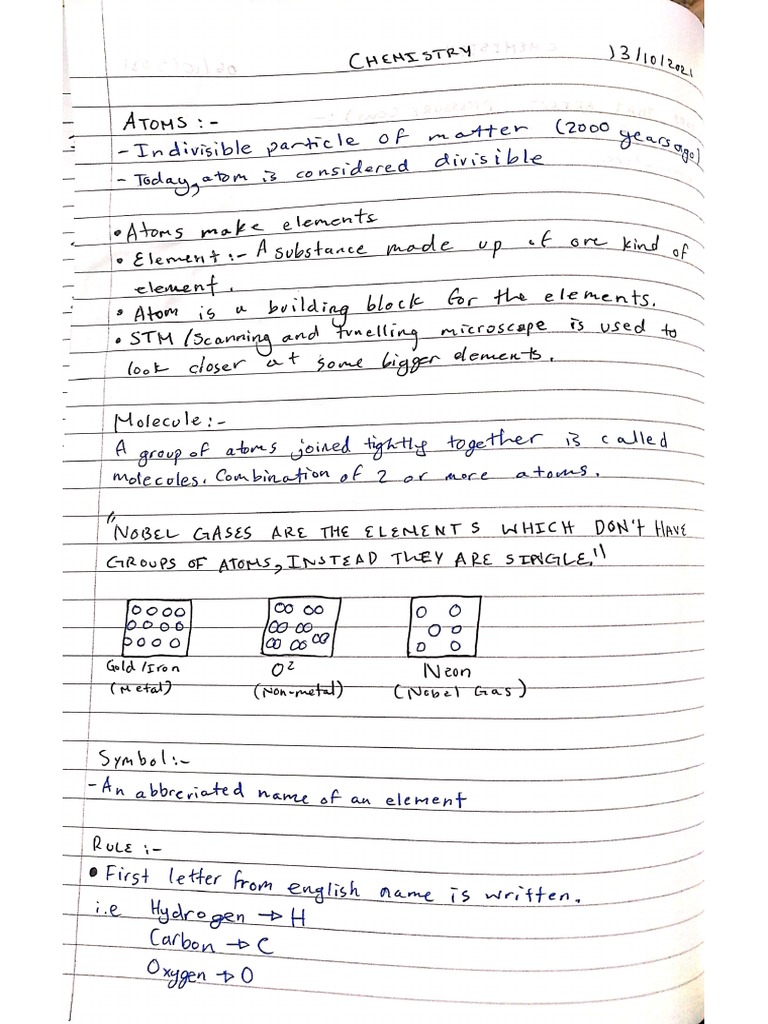 CHEMISTRY 13/10/2021
ATOMS :-
- Indivisible particle of matter (2000 years ago)
- Today, atom is considered divisible
• Atoms make elements
• Element :- A substance made up of one kind of
element.
• Atom is a building block for the elements.
• STM / Scanning and tunelling microscope is used to
look closer at some bigger elements.
Molecule :-
A group of atoms joined tightly together is called
molecoles. Combination of 2 or more atoms.
"NOBEL GASES ARE THE ELEMENTS WHICH DON'T HAVE
GROUPS OF ATOMS, INSTEAD THEY ARE SINGLE."
Gold / Iron O² Neon
(Metal) (Non-metal) (Nobel Gas)
Symbol :-
- An abbreriated name of an element
RULE :-
• First letter from english name is written.
i.e Hydrogen → H
Carbon → C
Oxygen → O